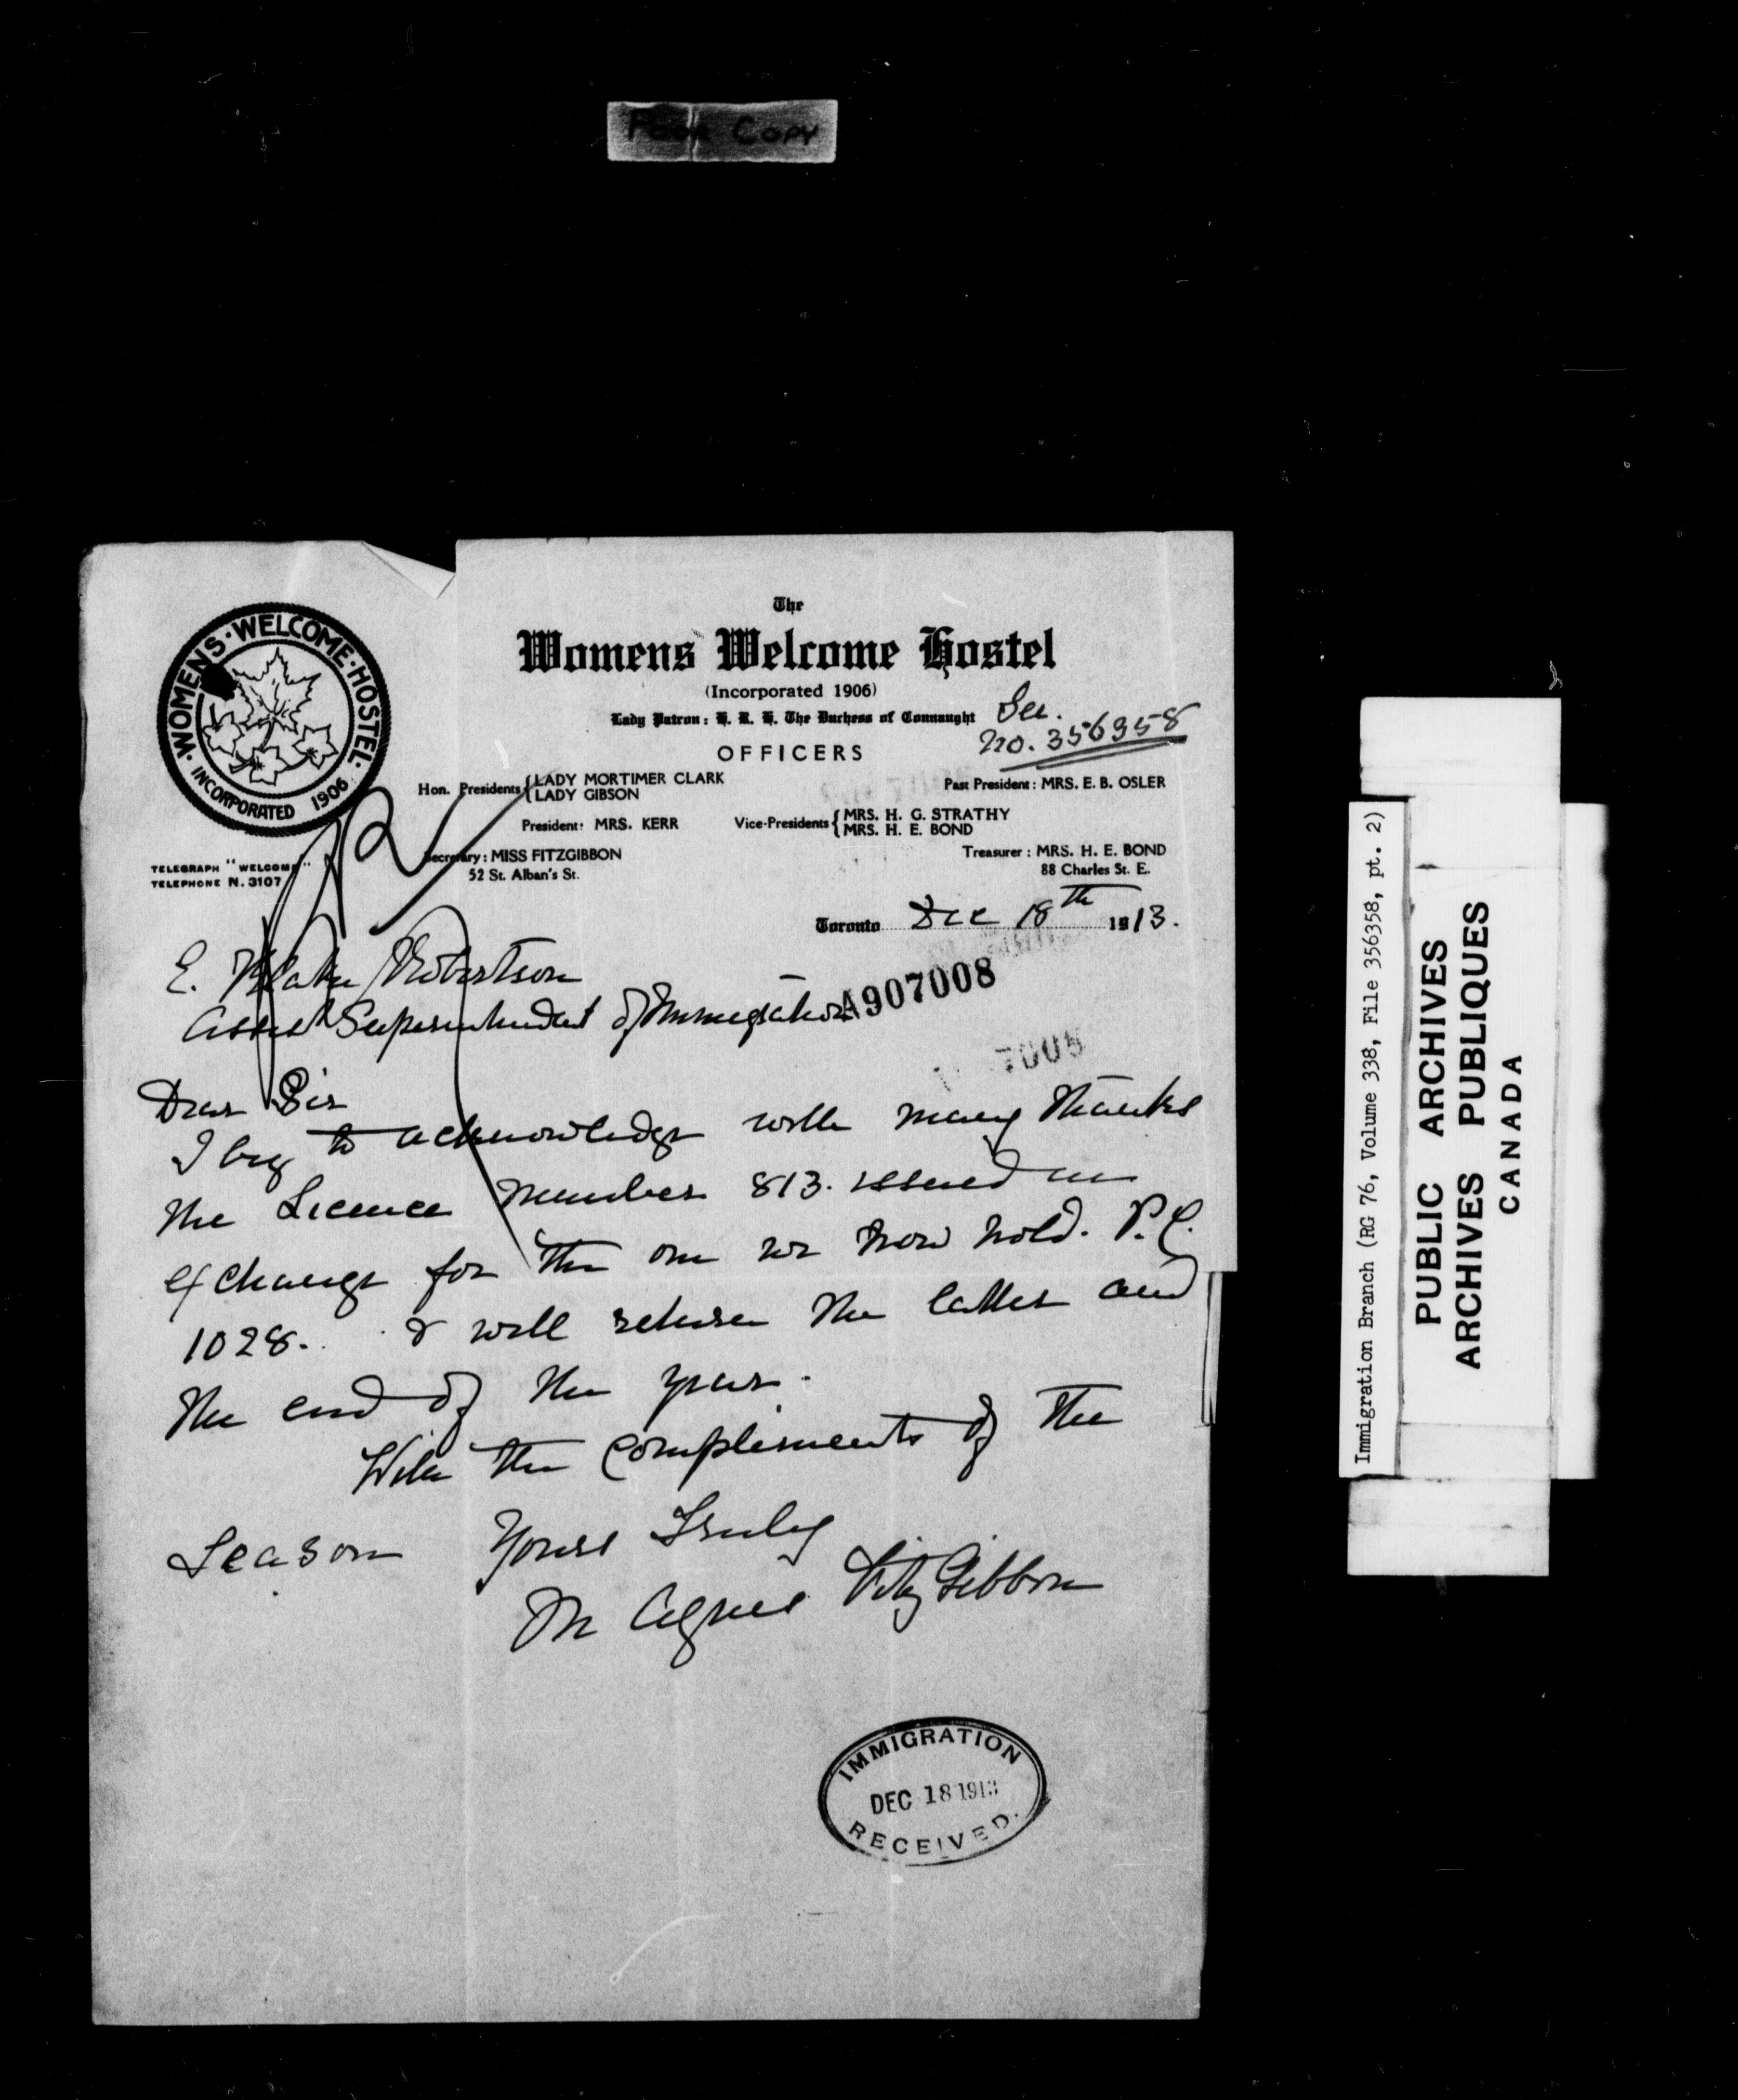 Poor Copy
WOMENS · WELCOME · HOSTEL ·
INCORPORATED 1906
The
Womens Welcome Hostel
(Incorporated 1906)
Lady Patron: H. R. H. The Duchess of Connaught
See.
No. 356358
OFFICERS
Hon. Presidents { LADY MORTIMER CLARK
LADY GIBSON
Past President: MRS. E. B. OSLER
President: MRS. KERR
Vice-Presidents { MRS. H. G. STRATHY
MRS. H. E. BOND
Secretary: MISS FITZGIBBON
52 St. Alban's St.
Treasurer: MRS. H. E. BOND
88 Charles St. E.
TELEGRAPH "WELCOME"
TELEPHONE N. 3107
Toronto Dec 18th 1913.
E. Blake Robertson
Assist Superintendent of Immigration
A907008
Dear Sir
I beg to acknowledge with many thanks
the Licence number 813. issued in
exchange for the one we now hold. P.C.
1028. I will return the latter and
the end of the year.
With the compliments of the
Season Yours Truly
M Agnes FitzGibbon
IMMIGRATION
DEC 18 1913
RECEIVED.
Immigration Branch (RG 76, Volume 338, File 356358, pt. 2)
PUBLIC ARCHIVES
ARCHIVES PUBLIQUES
CANADA